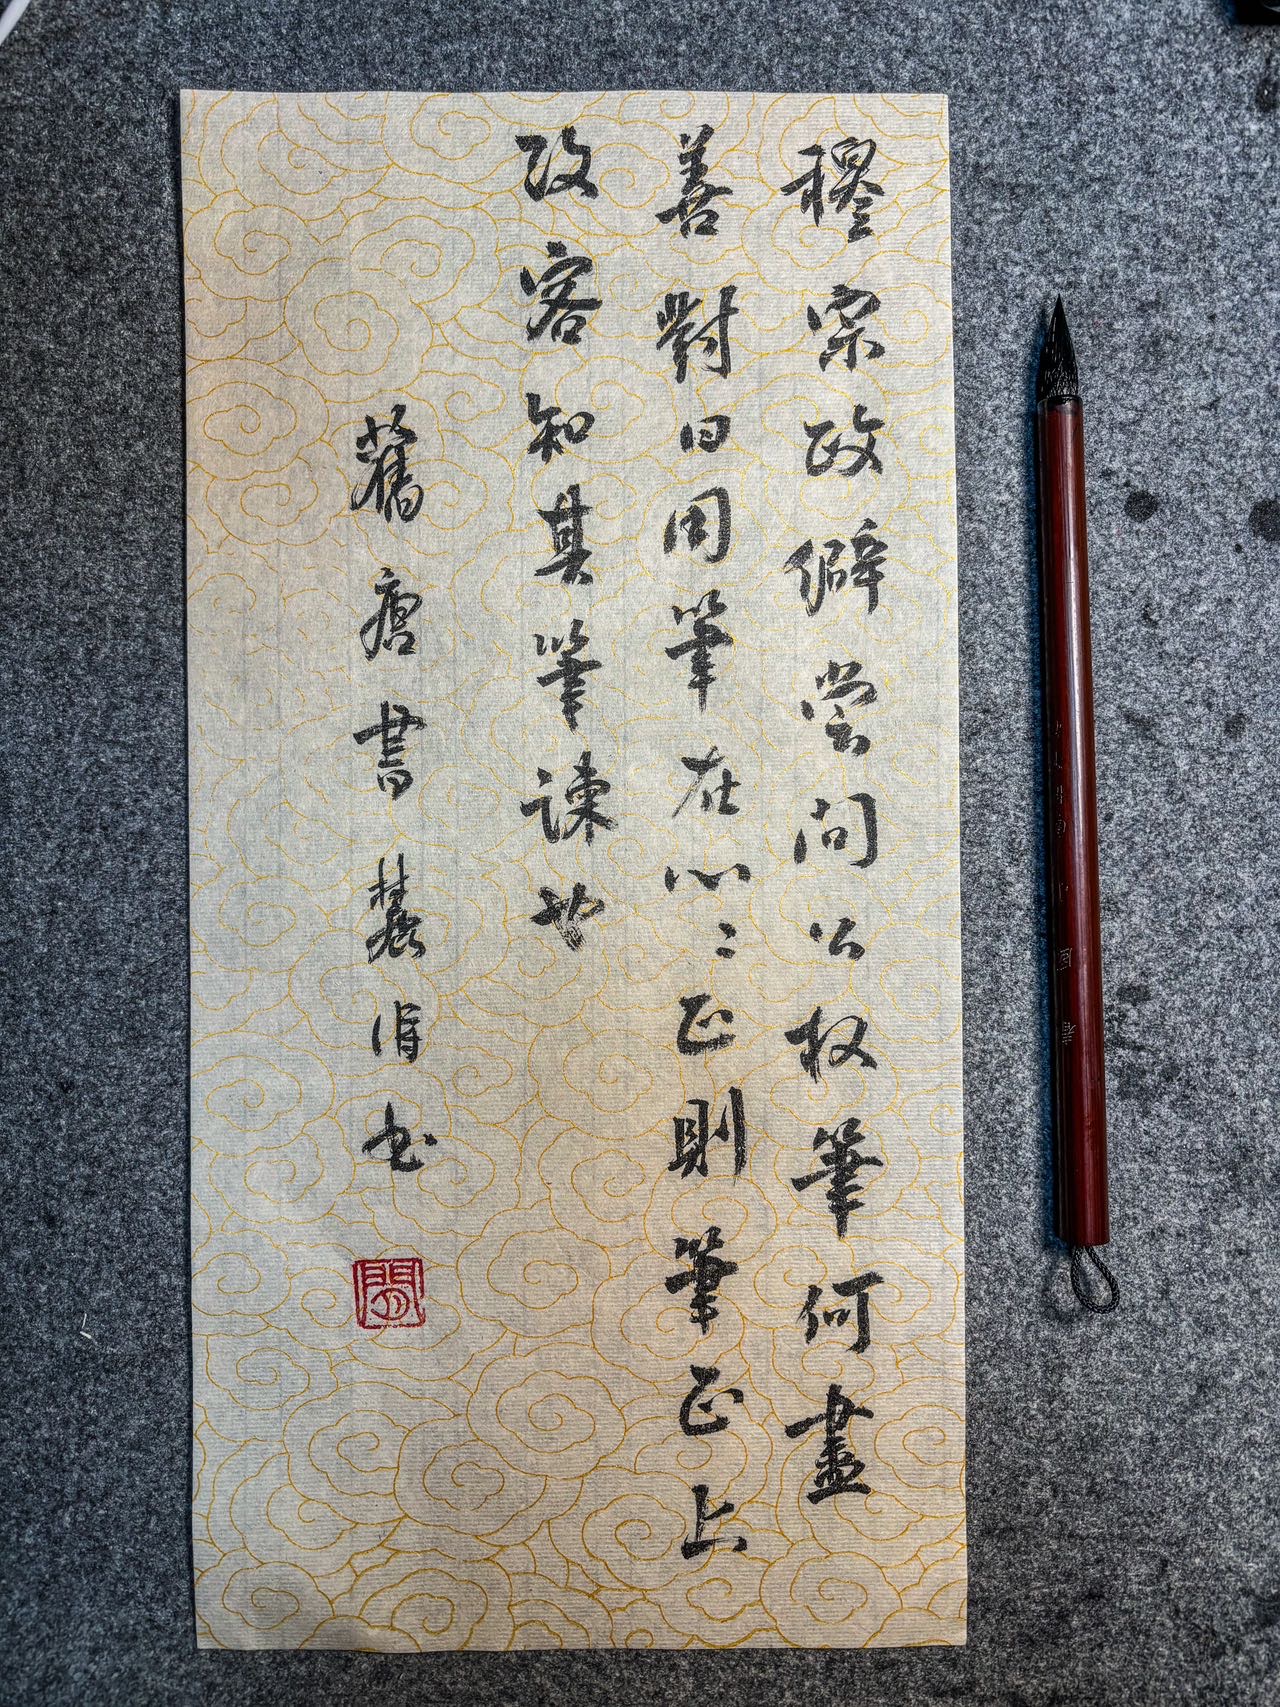 穆宗政僻嘗問公权筆何盡
善對曰用筆在心〻正則筆正上
改容知其筆諫也
舊唐書
書